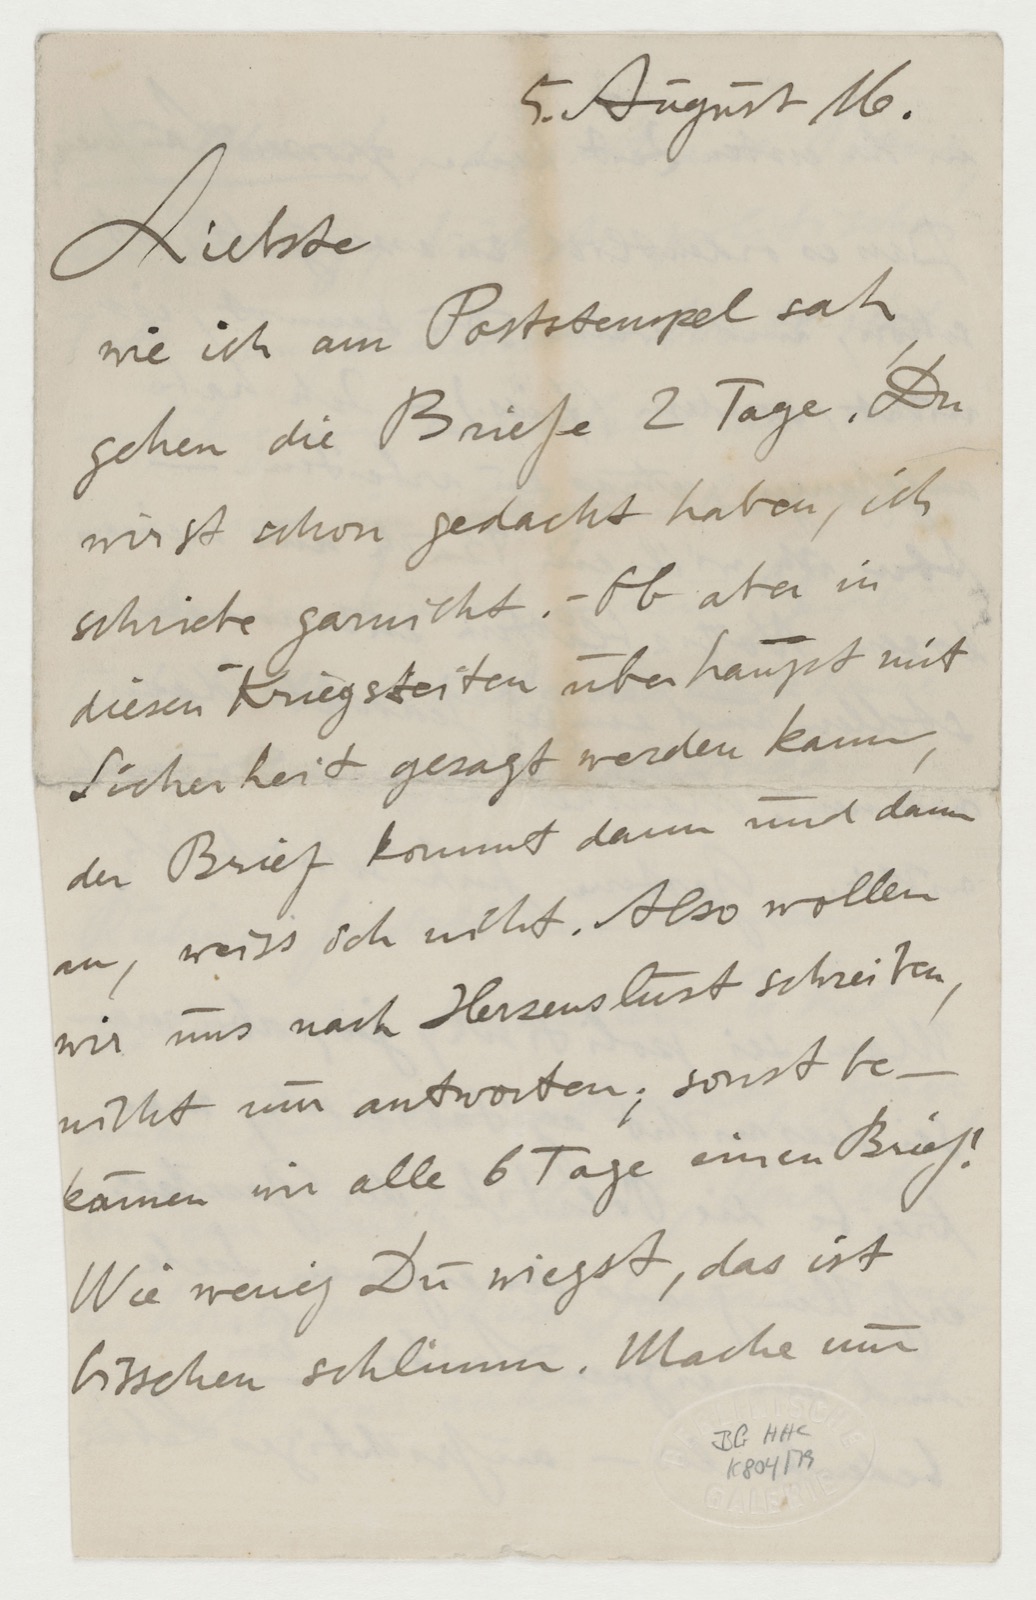 5. August 16.
Liebste
wie ich am Poststempel sah,
gehen die Briefe 2 Tage. Du
wirst schon gedacht haben, ich
schriebe garnicht. – Ob aber in
diesen Kriegszeiten überhaupt mit
Sicherheit gesagt werden kann,
der Brief kommt dann und dann
an, weiss ich nicht. Also wollen
wir uns nach Herzenslust schreiben,
nicht nur antworten; sonst be–
kämen wir alle 6 Tage einen Brief!
Wie wenig Du wiegst, das ist
bisschen schlimm. Mache nur
BG HHC
K804/79
GALERIE